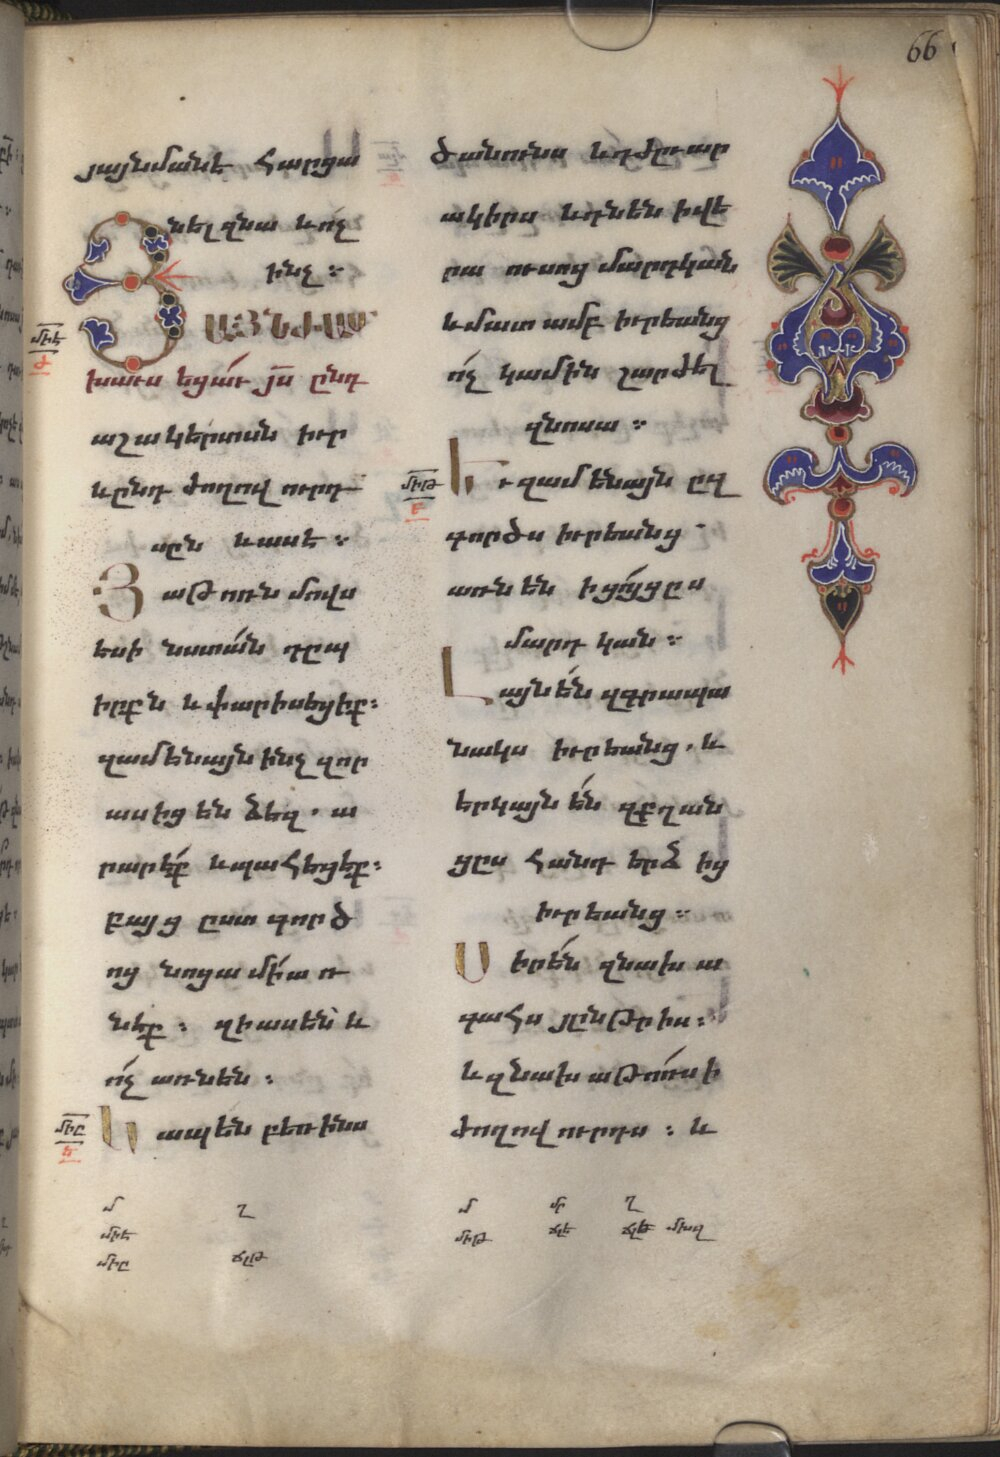 66
յայնմանէ հարցա
նել զնա և ոչ
ինչ ։
ՅԱՅՆԺԱՄ
խաւս եցաւ յս ընդ
աշակերտսն իւր
և ընդ ժողովուրդ
սըն և ասէ ։
Յաթոռն մովս
եսի նստան դըպ
իրքն և փարիսեցիք։
զամենայն ինչ զոր
ասիցեն ձեզ. ա
րարէք և պահեցէք։
բայց ըստ գործ
ոց նոցա մի առ
նէք ։ զի ասեն և
ոչ առնեն ։
Կապեն բեռինս
ծանունս և դժուար
ակիրս և դնեն ի վե
րա ուսոց մարդկան
և մատամբ իւրեանց
ոչ կամին շարժել
զնոսա ։
Եւ զամենայն ըզ
գործս իւրեանց
առնեն ի ցոյցըս
մարդկան ։
Լայնեն զգրապա
նակս իւրեանց. և
երկայնեն զքղան
ցըս հանդերձից
իւրեանց ։
Սիրեն զնախա
գահս յընթրիս ։
և զնախաթոռս ի
ժողովուրդս ։ և
միե
միը
միթ
մ
միե
միը
ղ
ճլթ
մ
միթ
մր
ճլե
ղ